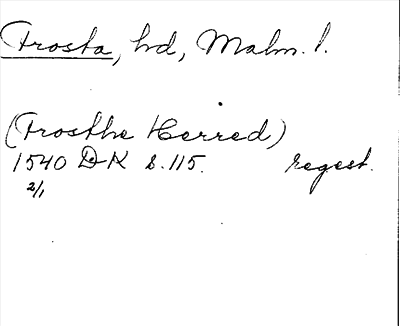 Frosta, hd, Malm. l.
(Frosthe Herred)
1540 DK s. 115. regest.
2/1